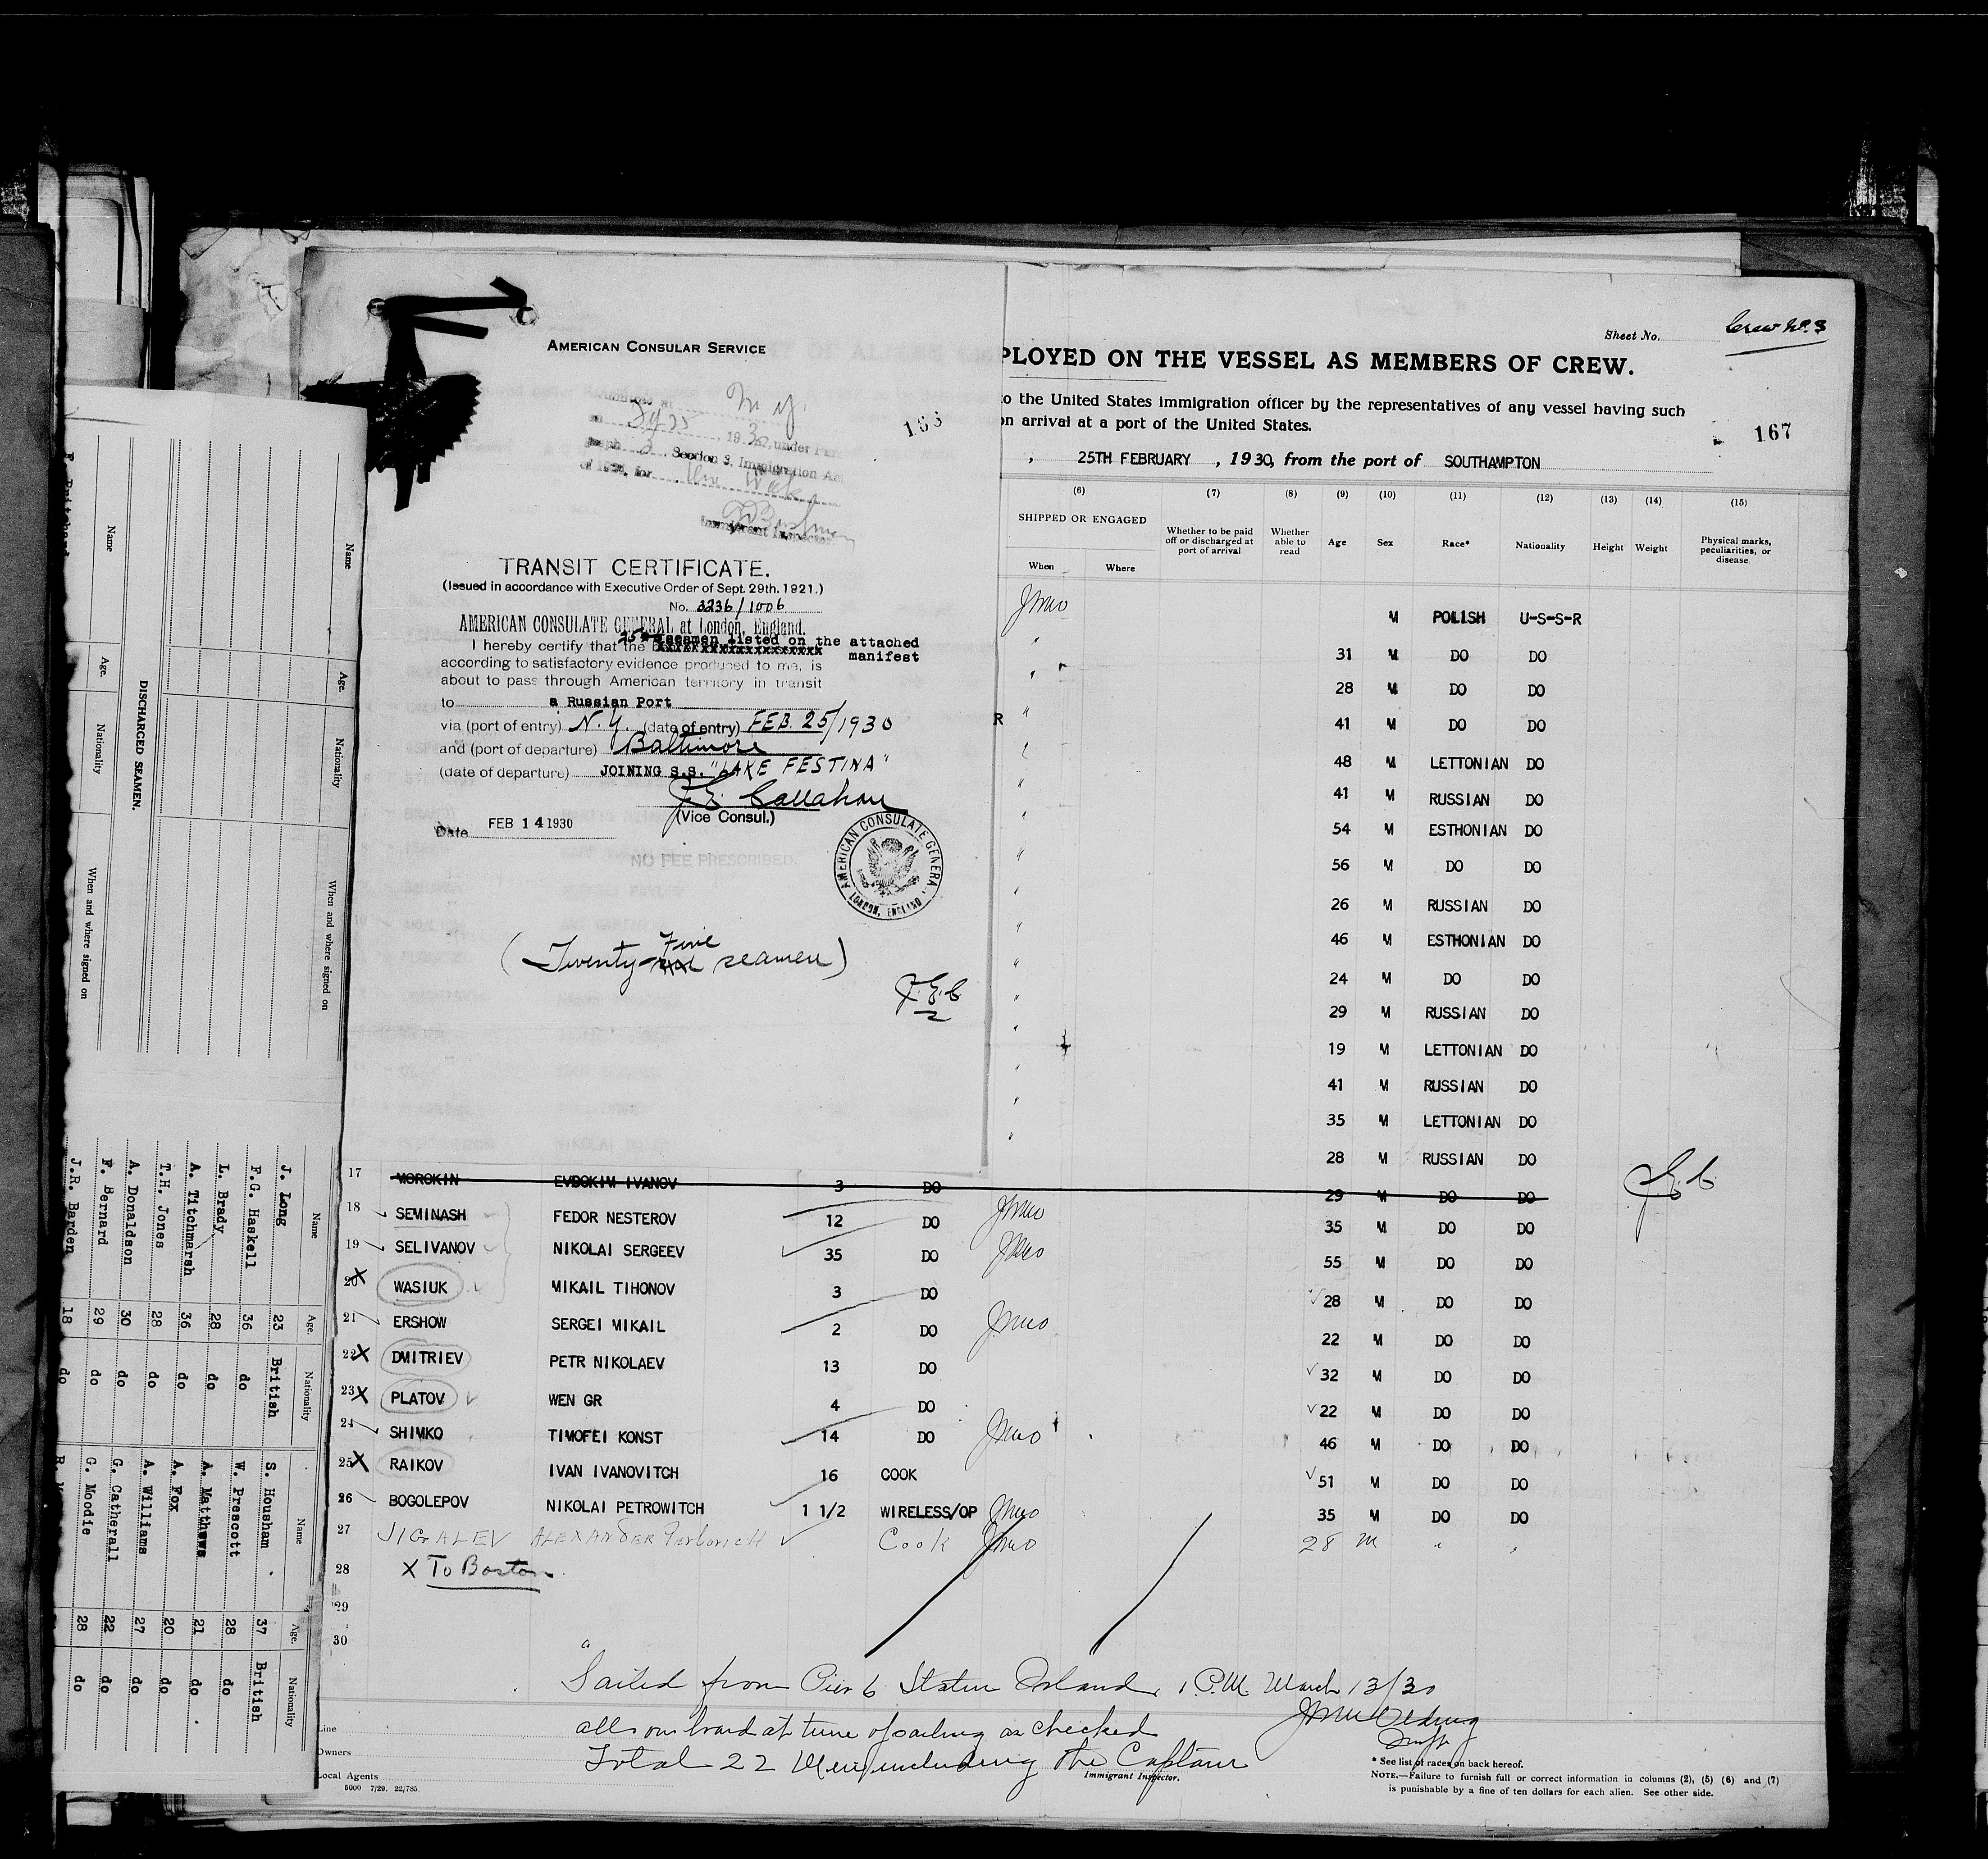 Sheet No. Crew No. 3
PLOYED ON THE VESSEL AS MEMBERS OF CREW.
to the United States immigration officer by the representatives of any vessel having such
on arrival at a port of the United States.
167
, 25TH FEBRUARY , 1930, from the port of SOUTHAMPTON
(6) (7) (8) (9) (10) (11) (12) (13) (14) (15)
SHIPPED OR ENGAGED
When Where
Whether to be paid off or discharged at port of arrival
Whether able to read
Age Sex Race* Nationality Height Weight
Physical marks, peculiarities, or disease
M POLISH U-S-S-R
31 M DO DO
28 M DO DO
R " 41 M DO DO
48 M LETTONIAN DO
41 M RUSSIAN DO
54 M ESTHONIAN DO
56 M DO DO
26 M RUSSIAN DO
46 M ESTHONIAN DO
24 M DO DO
29 M RUSSIAN DO
19 M LETTONIAN DO
41 M RUSSIAN DO
35 M LETTONIAN DO
28 M RUSSIAN DO
17 MOROKIN EVDOKIM IVANOV 3 DO 29 M DO DO
18 SEMINASH FEDOR NESTEROV 12 DO 35 M DO DO
19 SELIVANOV NIKOLAI SERGEEV 35 DO 55 M DO DO
20 X WASIUK MIKAIL TIHONOV 3 DO 28 M DO DO
21 ERSHOW SERGEI MIKAIL 2 DO 22 M DO DO
22 X DMITRIEV PETR NIKOLAEV 13 DO 32 M DO DO
23 X PLATOV WEN GR 4 DO 22 M DO DO
24 SHIMKO TIMOFEI KONST 14 DO 46 M DO DO
25 X RAIKOV IVAN IVANOVITCH 16 COOK 51 M DO DO
26 BOGOLEPOV NIKOLAI PETROWITCH 1 1/2 WIRELESS/OP 35 M DO DO
27 JIGALEV ALEXANDER Cook 28 M " "
28 X To Boston
29
30
Sailed from Pier 6 Staten Island, 1 P.M. March 13/30
all on board at time of sailing as checked
Total 22 Men including the Captain
Line
Owners
Local Agents
5000 7/29. 22/785.
Immigrant Inspector.
* See list of races on back hereof.
NOTE.—Failure to furnish full or correct information in columns (2), (5) (6) and (7)
is punishable by a fine of ten dollars for each alien. See other side.
AMERICAN CONSULAR SERVICE
N.Y.
1930, under
3 Section 3, Immigration Act
Immigrant Inspector
TRANSIT CERTIFICATE.
(Issued in accordance with Executive Order of Sept. 29th. 1921.)
No. 3236/1006
AMERICAN CONSULATE GENERAL at London, England.
I hereby certify that the 25 seamen listed on the attached manifest
according to satisfactory evidence produced to me, is
about to pass through American territory in transit
to a Russian Port
via (port of entry) N.Y. (date of entry) FEB. 25/1930
and (port of departure) Baltimore
(date of departure) JOINING S.S. "LAKE FESTINA"
J.E. Callahan
(Vice Consul.)
Date FEB 14 1930
NO FEE PRESCRIBED.
AMERICAN CONSULATE GENERAL
LONDON, ENGLAND
(Twenty-five seamen)
J.E.C.
J.E.C.
Name Age. Nationality When and where signed on
DISCHARGED SEAMEN.
Name Age. Nationality When and where signed on
Name Age. Nationality
J. Long 23 British
F.G. Haskell 36 do
L. Brady 28 do
A. Titchmarsh 36 do
T.H. Jones 28 do
A. Donaldson 30 do
F. Bernard 29 do
J.R. Barden 18 do
Name Age. Nationality
S. Housham 37 British
W. Prescott 28 do
A. Matthews 21 do
A. Fox 20 do
A. Williams 27 do
G. Catherall 22 do
G. Moodie 28 do